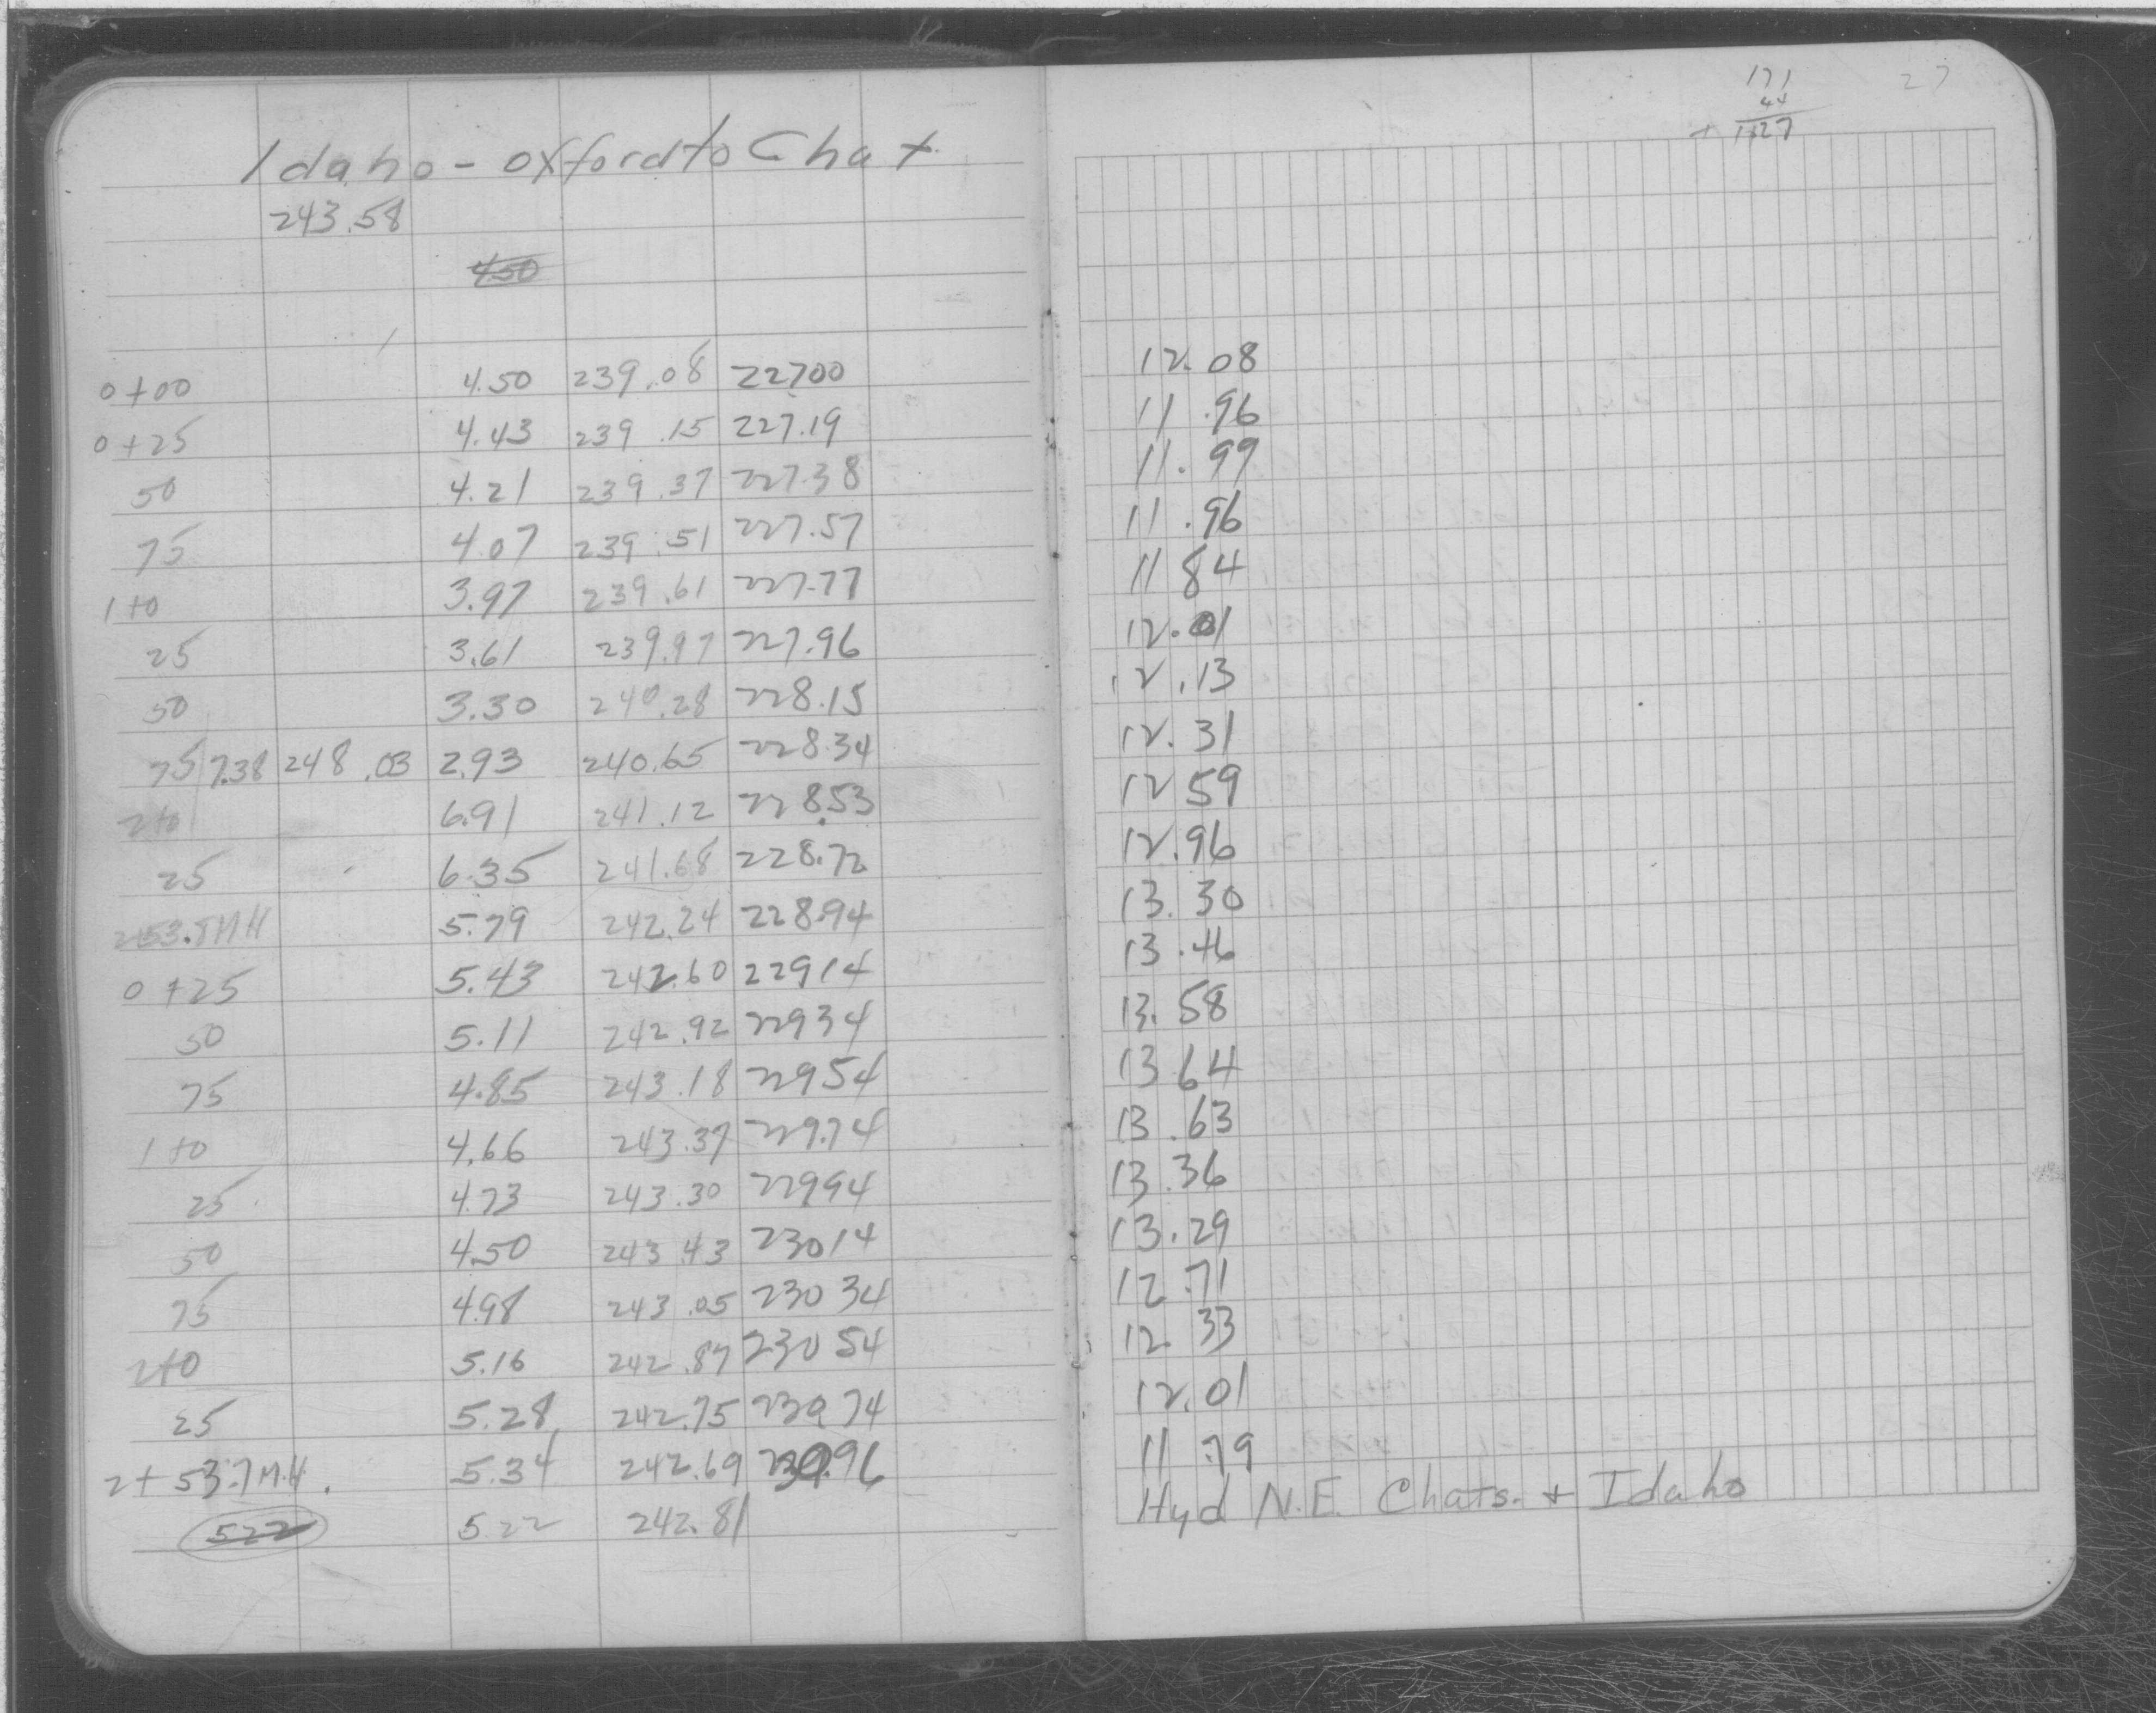 171
27
44
+ 1127
Idaho - Oxford to Chat.
243.58
4.50
0+00 4.50 239.08 22700 12.08
0+25 4.43 239.15 227.19 11.96
50 4.21 239.37 227.38 11.99
75 4.07 239.51 227.57 11.96
1+0 3.97 239.61 227.77 11 84
25 3.61 239.97 227.96 12.01
50 3.30 240.28 228.15 12.13
75 7.38 248.03 2.93 240.65 228.34 12.31
2+0 6.91 241.12 228.53 12 59
25 6.35 241.68 228.72 12.96
2+53.8 MH 5.79 242.24 228.94 13.30
0+25 5.43 242.60 22914 13.46
50 5.11 242.92 22934 13.58
75 4.85 243.18 22954 13 64
1+0 4.66 243.37 229.74 13.63
25 4.73 243.30 22994 13.36
50 4.50 243.43 23014 13.29
75 4.98 243.05 230 34 12.71
2+0 5.16 242.87 230 54 12.33
25 5.28 242.75 230 74 12.01
2+ 53.7 M.H. 5.34 242.69 230.96 11.79
522 5 22 242.81 Hyd N.E. Chats. + Idaho